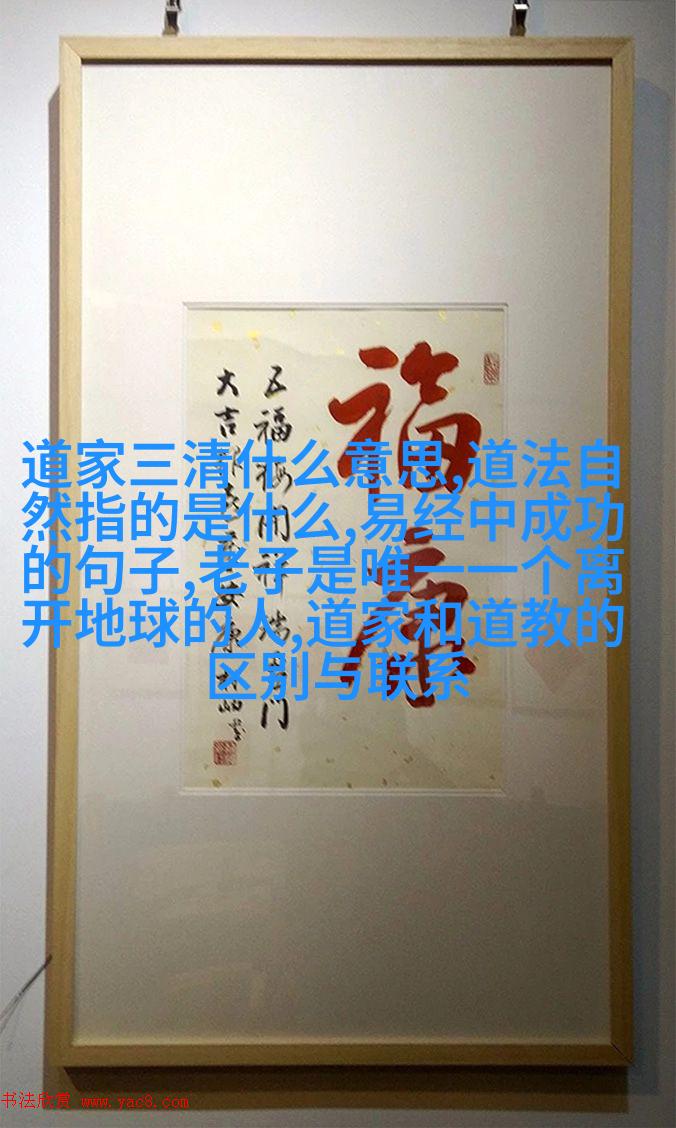 道家三清什么意思,道法自
然指的是什么,易经中成功
的句子,老子是唯一一个离
开地球的人,道家和道教的
区别与联系
福康
五福梅开祥瑞
门
大吉
安康
书法欣赏 www.yac8.com